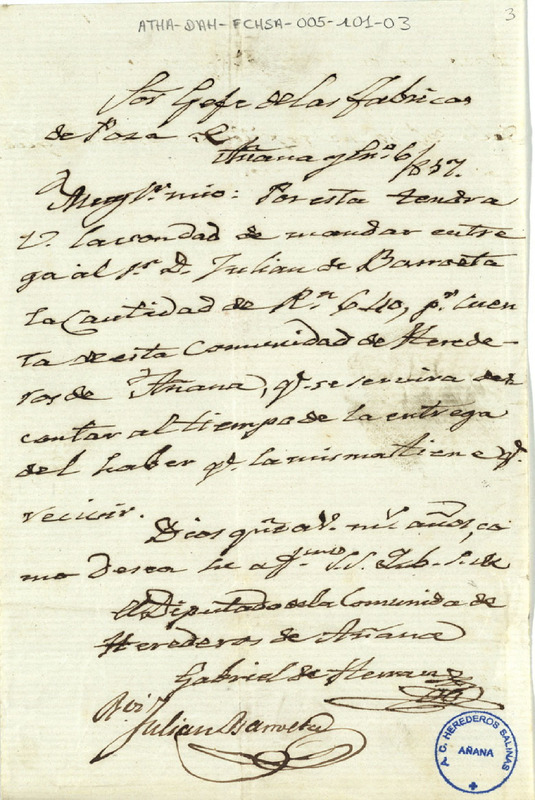 ATHA-DAH-FCHSA-005-101-03
3
Sor Gefe de las fabricas
de Poza
Añana y En.º 6/857.
Muy Sr. mio: Por esta tendra
V. la vondad de mandar entre
ga al Sr. D. Julian de Barroeta
la Cantidad de Rn. 640, pr. cuen
ta de esta Comunidad de Herede-
ros de Añana, qe. se servira des
contar al tiempo de la entrega
del haber qe. la misma tiene qe.
recivir.
Dios gue. a V. ms. años, co
mo desea su afmo. S. S. Q. b. s. m.
El Diputado de la Comunida de
Herederos de Añana
Gabriel de Herran
Rvi
Julian Barroeta
A. C. HEREDEROS SALINAS
AÑANA